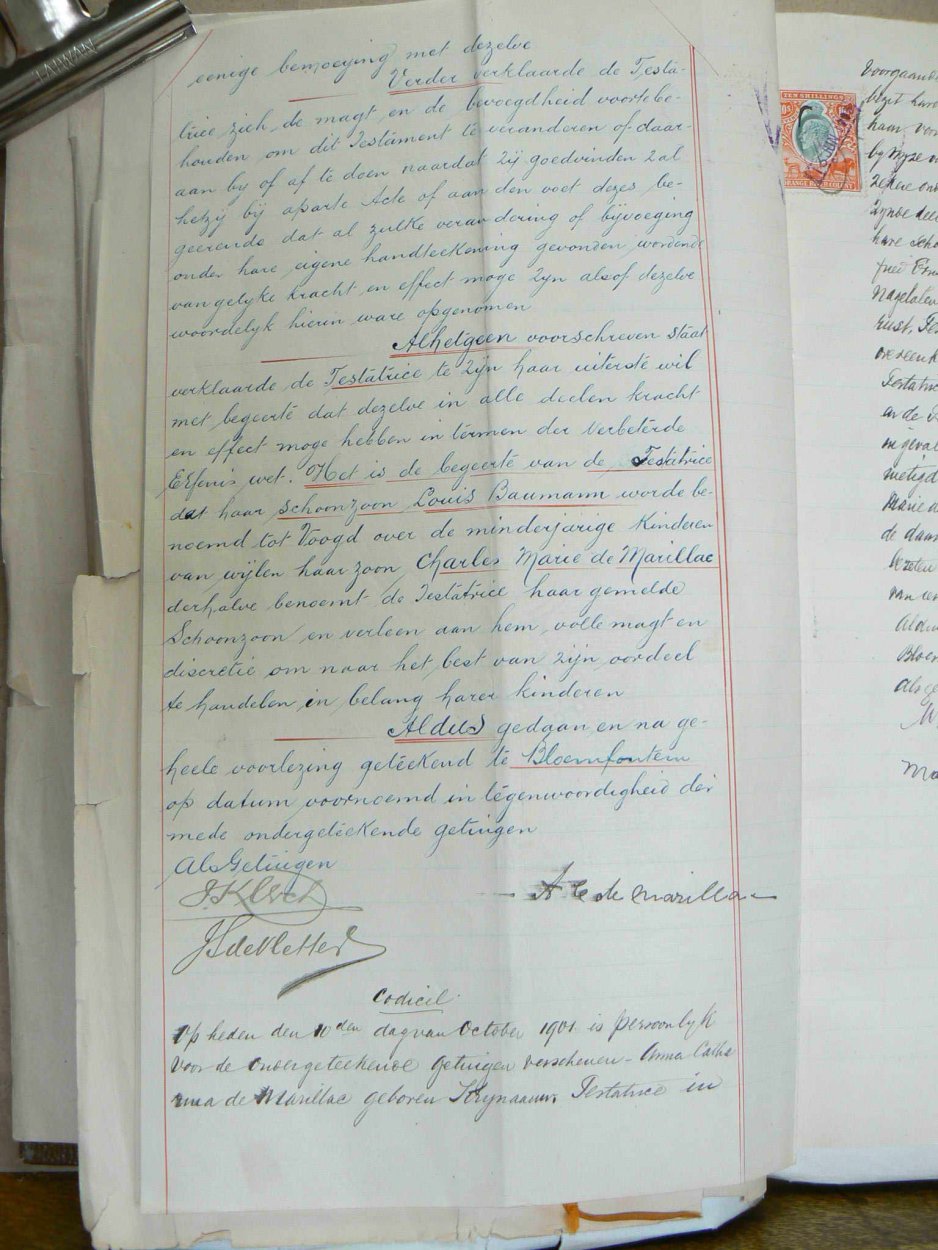 TAIWAN
eenige bemoeijing met dezelve
Verder verklaarde de Testa-
trice zich de magt en de bevoegdheid voortebe-
houden om dit Testament te veranderen of daar-
aan by of af te doen naardat zij goedvinden zal
hetzij bij aparte Acte of aan den voet dezes be-
geerende dat al zulke verandering of bijvoeging
onder hare eigene handteekening gevonden wordende
van gelyke kracht en effect moge zijn alsof dezelve
woordelyk hierin ware opgenomen
Alhetgeen voorschreven staat
verklaarde de Testatrice te zijn haar uiterste wil
met begeerte dat dezelve in alle deelen kracht
en effect moge hebben in termen der Verbeterde
Erfenis wet. Het is de begeerte van de Testatrice
dat haar schoonzoon Louis Baumann worde be-
noemd tot Voogd over de minderjarige Kinderen
van wijlen haar zoon Charles Marie de Marillac
derhalve benoemt de Testatrice haar gemelde
Schoonzoon en verleen aan hem volle magt en
discretie om naar het best van zijn oordeel
te handelen in belang harer kinderen
Aldus gedaan en na ge-
heele voorlezing geteekend te Bloemfontein
op datum voornoemd in tegenwoordigheid der
mede ondergeteekende getuigen
Als Getuigen
de Marilla
Codicil.
Op heden den 10den dag van October 1901 is persoonlyk
voor de ondergeteekende getuigen verschenen - Anna Catha
rina de Marillac geboren Krynauw, Testatrice in
TEN SHILLINGS
ORANGE RIVER COLONY
Voorgaande
haar
Zynde
hare Scho
Nagelaten
rust. Tes
overeenk
Testatric
en de
in geval
Marie
de daar
Bloem